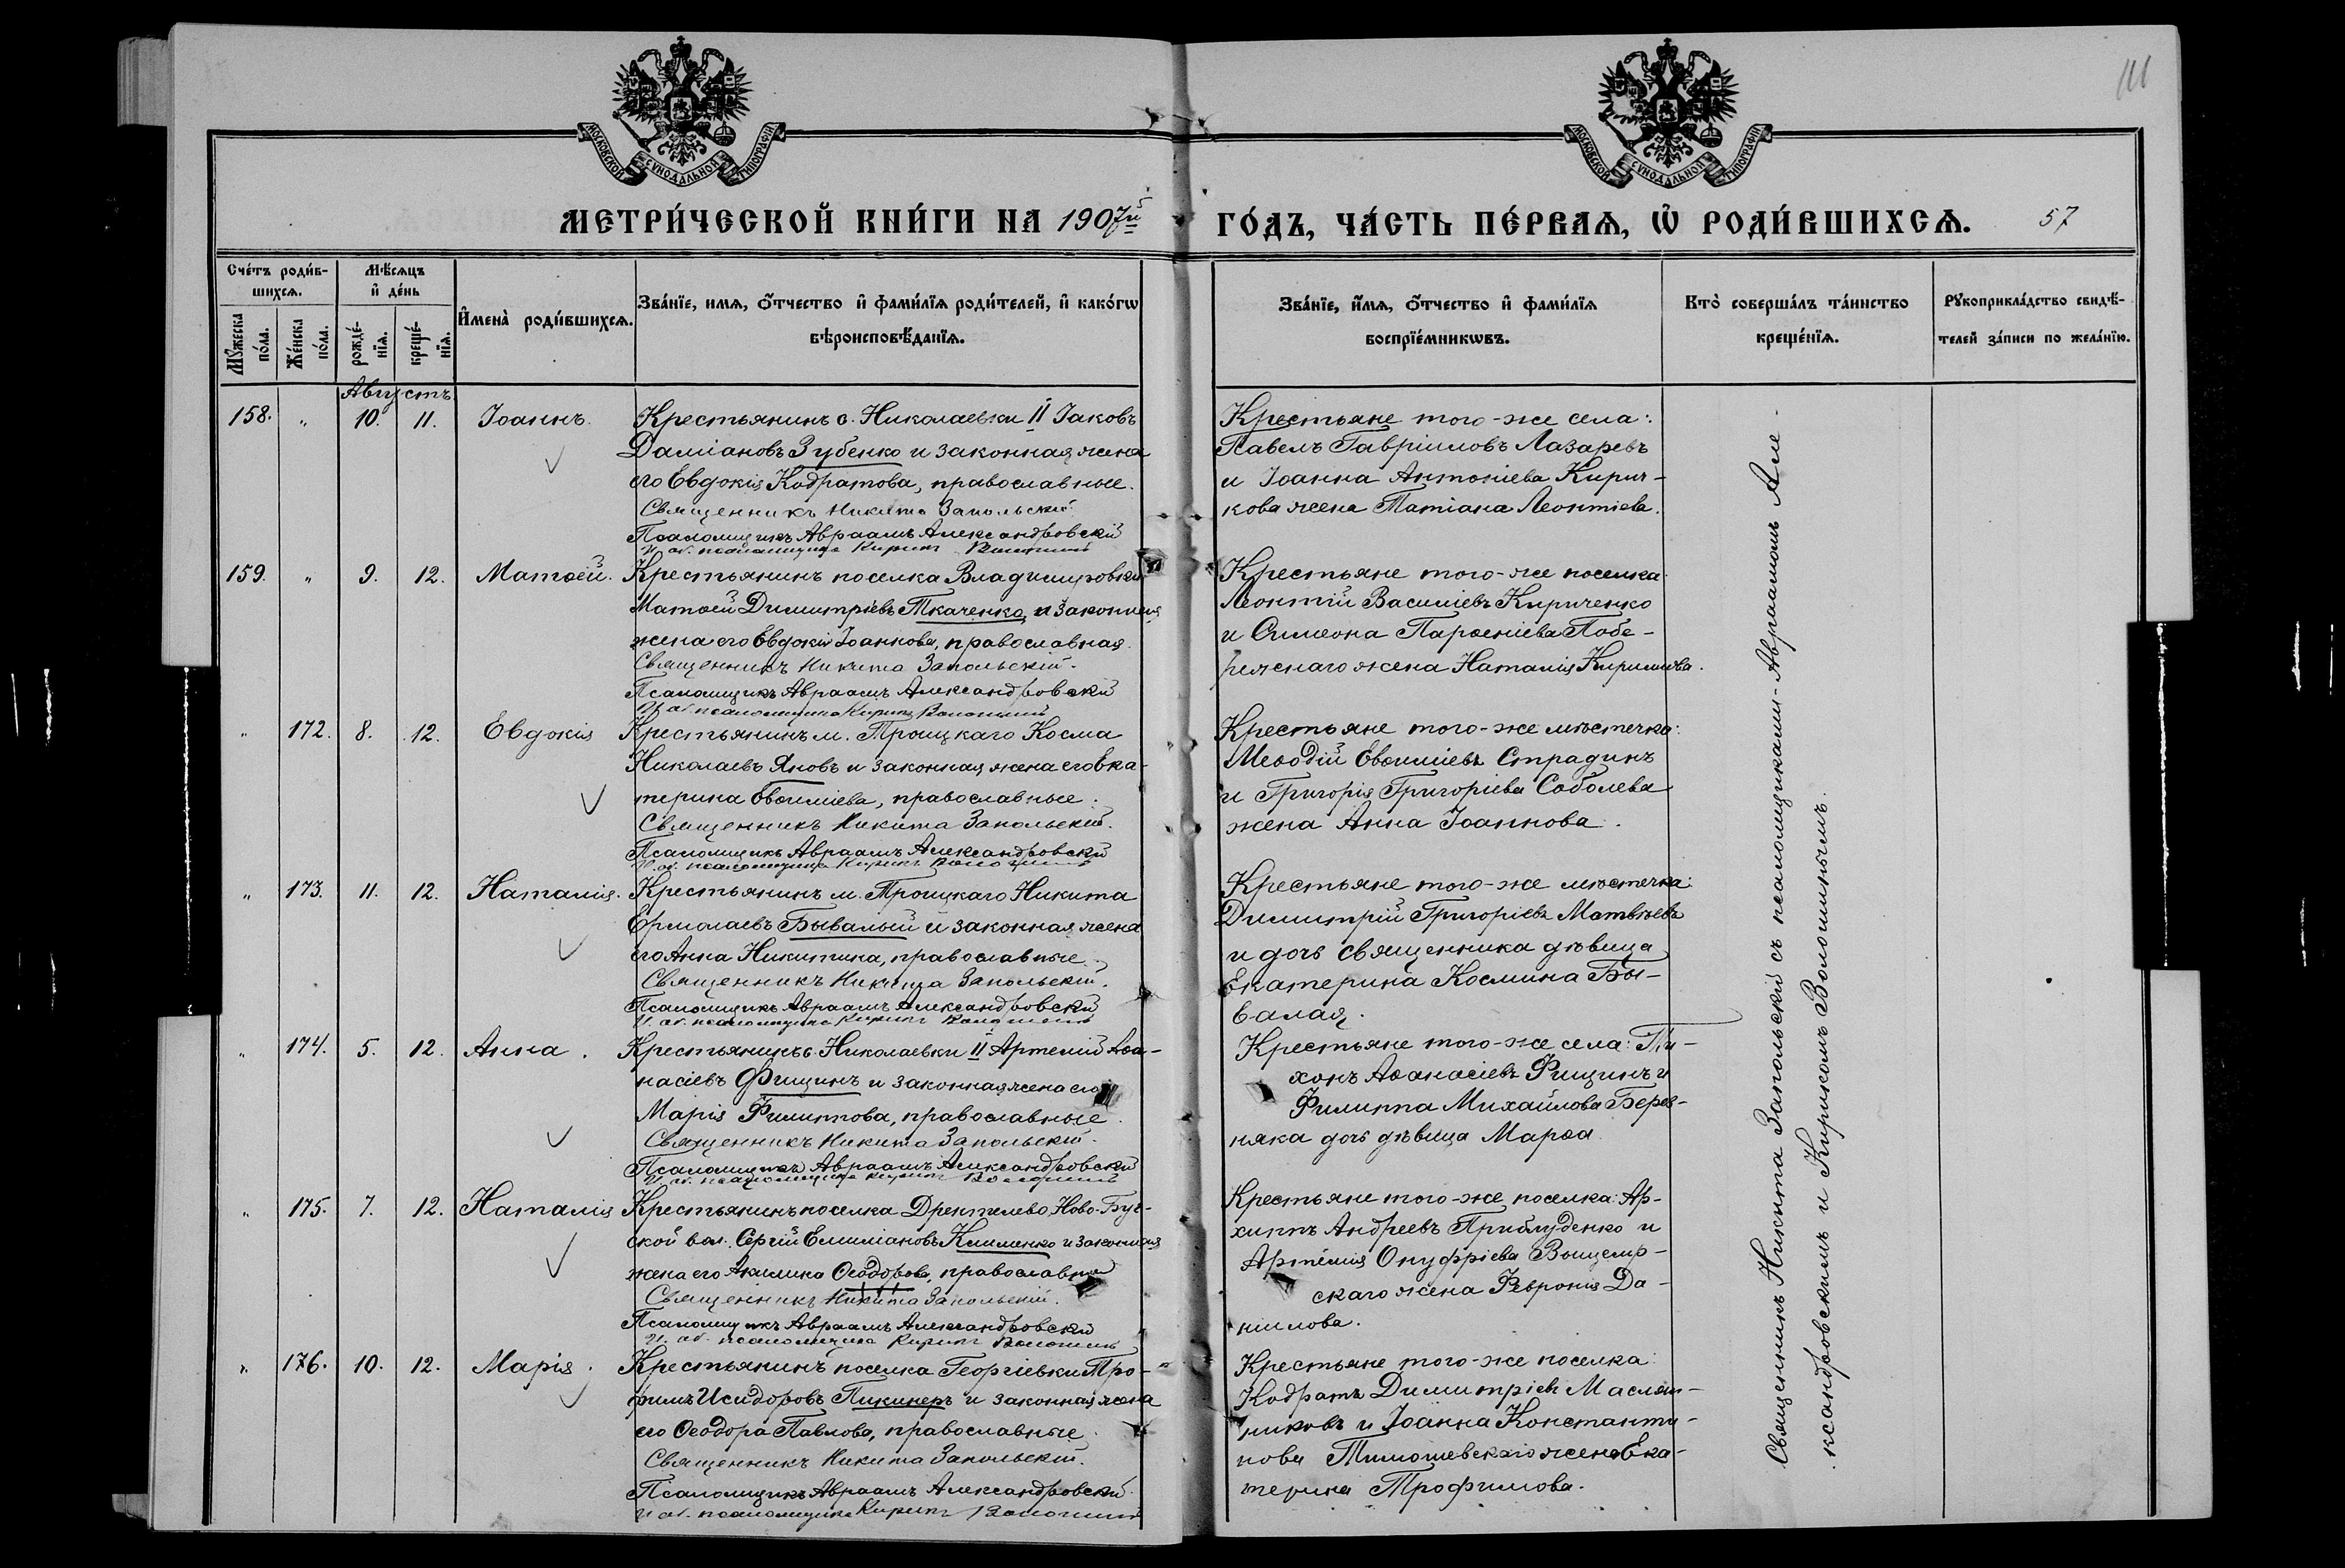 111
МОСКОВСКОЙ СѴНОДАЛЬНОЙ ТИПОГРАФІИ
МОСКОВСКОЙ СѴНОДАЛЬНОЙ ТИПОГРАФІИ
МЕТРИ́ЧЕСКОЙ КНИ́ГИ НА 1907й
ГО́ДЪ, ЧА́СТЬ ПЕ́РВАѦ, Ѡ҆ РОДИ́ВШИХСѦ. 57
Сче́тъ роди́в-
шихсѧ.
Мꙋ́жеска по́ла.
Же́нска по́ла.
Мѣ́сѧцъ
и҆ де́нь
рожде́-
нїѧ.
креще́-
нїѧ.
И҆мена̀ роди́вшихсѧ.
Зва́нїе, имѧ, ѻ҆́тчество и҆ фами́лїѧ роди́телей, и҆ како́гѡ
вѣроисповѣ́данїѧ.
Зва́нїе, и҆́мѧ, ѻ҆́тчество и҆ фами́лїѧ
воспрїе́мникѡвъ.
Кто̀ соверша́лъ та́инство
креще́нїѧ.
Рꙋкоприкла́дство свидѣ́-
телей за́писи по жела́нїю.
Августъ
158. " 10. 11. Іоаннъ.
Крестьянинъ с. Николаевки II Іаковъ
Даміановъ Зубенко и законная жена
его Евдокія Кодратова, православные.
Священникъ Никита Запольскій.
Псаломщикъ Авраамъ Александровскій
И. об. псаломщика Кирикъ Волошинъ
Крестьяне того-же села:
Павелъ Гавріиловъ Лазаревъ
и Іоанна Антоніева Кирич-
кова жена Татіана Леонтіева.
159. " 9. 12. Матѳей.
Крестьянинъ поселка Владимировки
Матѳей Димитріевъ Ткаченко и законная
жена его Евдокія Іоаннова, православная.
Священникъ Никита Запольскій.
Псаломщикъ Авраамъ Александровскій
И. об. псаломщика Кирикъ Волошинъ
Крестьяне того-же поселка:
Леонтій Василіевъ Кириченко
и Симеона Парѳеніева Побе-
режнаго жена Наталія Кириллова.
" 172. 8. 12. Евдокія
Крестьянинъ м. Троицкаго Косма
Николаевъ Яновъ и законная жена его Ека-
терина Евѳиміева, православные.
Священникъ Никита Запольскій.
Псаломщикъ Авраамъ Александровскій
И. об. псаломщика Кирикъ Волошинъ
Крестьяне того-же мѣстечка:
Меѳодій Евѳиміевъ Страдинъ
и Григорія Григоріева Соболева
жена Анна Іоаннова.
" 173. 11. 12. Наталія.
Крестьянинъ м. Троицкаго Никита
Ермолаевъ Бывалый и законная жена
его Анна Никитина, православные.
Священникъ Никита Запольскій.
Псаломщикъ Авраамъ Александровскій
И. об. псаломщика Кирикъ Волошинъ
Крестьяне того-же мѣстечка:
Димитрій Григоріевъ Матвѣевъ
и дочь священника дѣвица
Екатерина Космина Бы-
валая.
" 174. 5. 12. Анна.
Крестьянинъ с. Николаевки II Артемій Аѳа-
насіевъ Фищинъ и законная жена его
Марія Филиппова, православные.
Священникъ Никита Запольскій.
Псаломщикъ Авраамъ Александровскій
И. об. псаломщика Кирикъ Волошинъ
Крестьяне того-же села: Ти-
хонъ Аѳанасіевъ Фищинъ и
Филиппа Михайлова Берев-
няка дочь дѣвица Марѳа.
" 175. 7. 12. Наталія
Крестьянинъ поселка Дрентелево Ново-Буг-
ской вол. Сергій Емиліановъ Клименко и законная
жена его Акилина Ѳеодорова, православные
Священникъ Никита Запольскій.
Псаломщикъ Авраамъ Александровскій
И. об. псаломщика Кирикъ Волошинъ
Крестьяне того-же поселка: Ар-
хиппъ Андреевъ Приблуденко и
Артемія Онуфріева Воицехов-
скаго жена Февронія Да-
ніилова.
" 176. 10. 12. Марія.
Крестьянинъ поселка Георгіевки Тро-
фимъ Исидоровъ Пикинеръ и законная жена
его Ѳеодора Павлова, православные.
Священникъ Никита Запольскій.
Псаломщикъ Авраамъ Александровскій.
И. об. псаломщика Кирикъ Волошинъ
Крестьяне того-же поселка:
Кодратъ Димитріевъ Маслян-
никовъ и Іоанна Константи-
нова Тимошевскаго жена Ека-
терина Трофимова.
Священникъ Никита Запольскій съ псаломщиками Авраамомъ Але-
ксандровскимъ и Кирикомъ Волошинымъ.